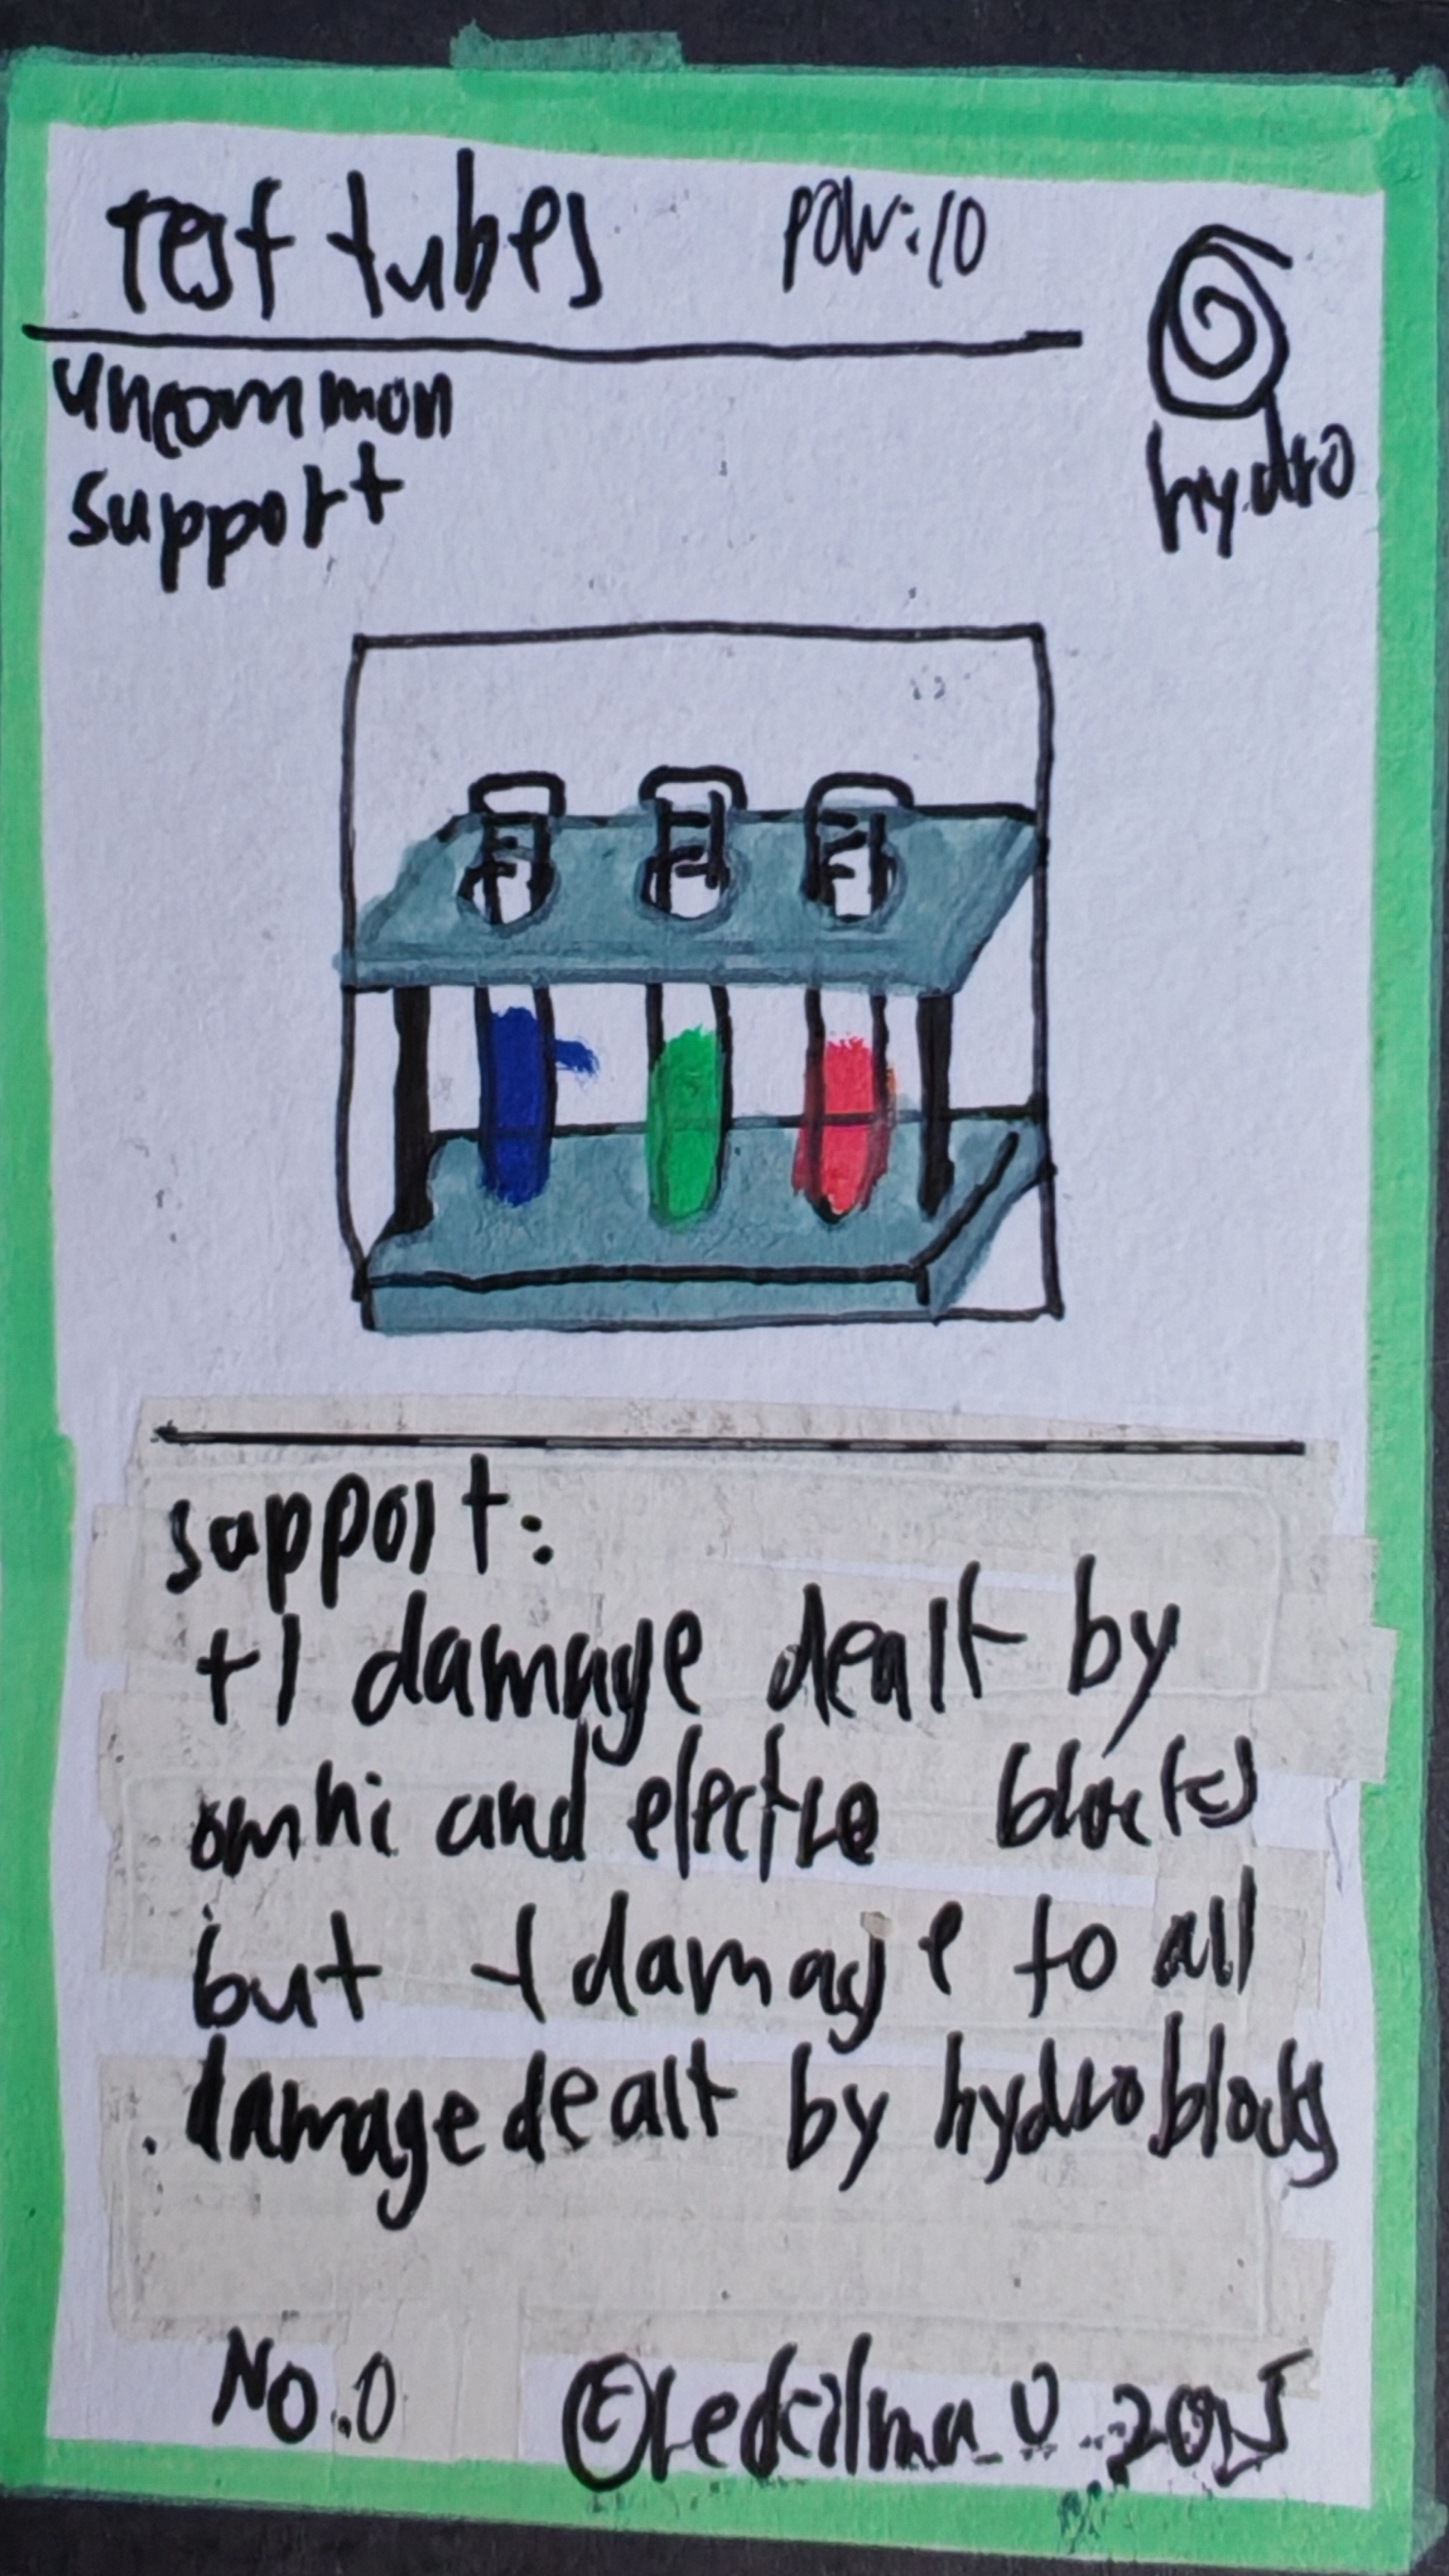 Test tubes
POW:10
uncommon
support
hydro
support:
+1 damage dealt by
omni and electro blocks
but -1 damage to all
damage dealt by hydro blocks
No.0
2025